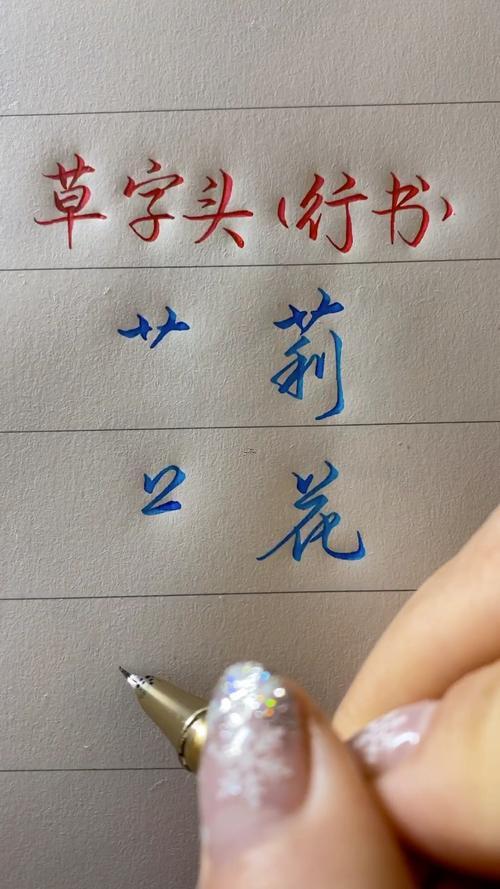 草字头（行书）
艹 莉
艹 花